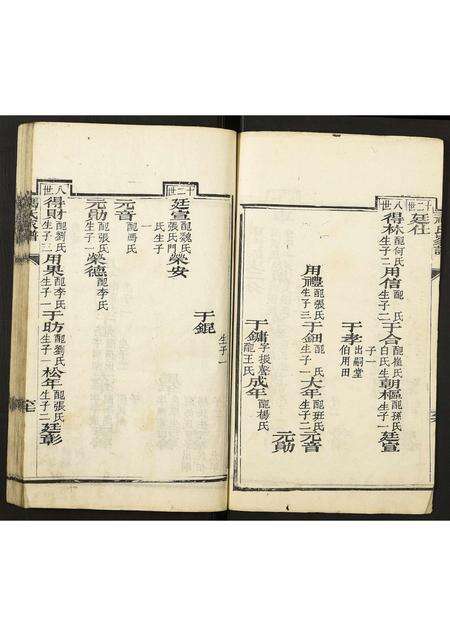 八世
十二世
得林配何氏生子二用信配氏生子二于合配崔氏白氏生子一朝樞配孫氏生子一廷宣
廷任
于孝出嗣堂伯用田
用禮配張氏生子三于鈿配氏生子一大年配班氏生子二元音
元勛
于鏞字振聲配王氏成年配楊氏
于錕生子一
十二世
廷宣配魏氏張氏門氏生子一榮安
元音配馮氏
元勛配張氏生子一榮德配李氏
八世
得財配劉氏生子三用果配李氏生子一于昉配劉氏生子一松年配張氏生子二廷彰